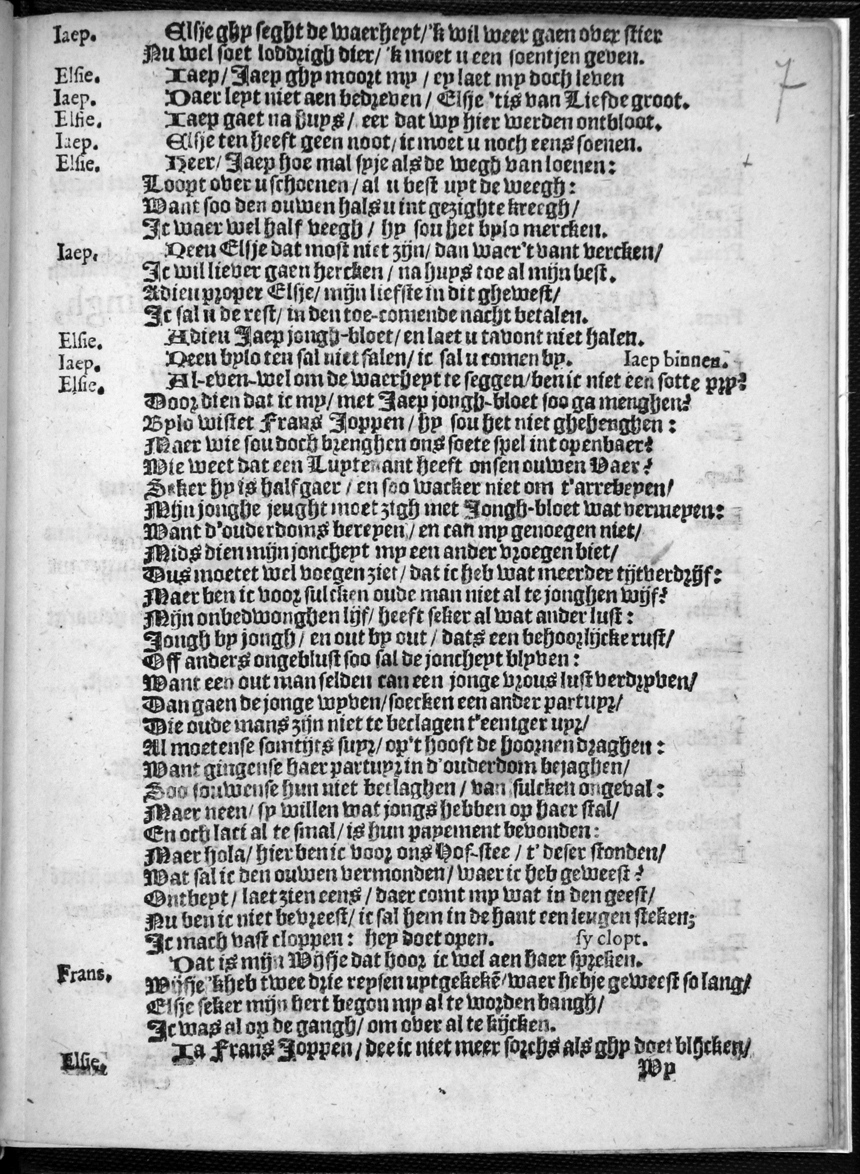 7
Iaep. Elsje ghy seght de waerheyt/ 'k wil weer gaen over stier
Nu wel soet loddrigh dier/ 'k moet u een soentjen geven.
Elsie. Iaep/ Jaep ghy moort my / ey laet my doch leven
Iaep. Daer leyt niet aen bedreven/ Elsje 'tis van Liefde groot.
Elsie. Iaep gaet na huys/ eer dat wy hier werden ontbloot.
Iaep. Elsje ten heeft geen noot/ ic moet u noch eens soenen.
Elsie. Heer/ Jaep hoe mal syje als de wegh van loenen:
Loopt over u schoenen/ al u best uyt de weegh:
Want soo den ouwen hals u int gezighte kreegh/
Ic waer wel half veegh / hy sou het bylo mercken.
Iaep. Neen Elsje dat most niet zijn/ dan waer't vant vercken/
Ic wil liever gaen hercken / na huys toe al mijn best.
Adieu proper Elsje/ mijn liefste in dit ghewest/
Ic sal u de rest/ in den toe-comende nacht betalen.
Elsie. Adieu Jaep jongh-bloet/ en laet u tavont niet halen.
Iaep. Neen bylo ten sal niet falen/ ic sal u comen by. Iaep binnen.
Elsie. Al-even-wel om de waerheyt te seggen/ ben ic niet een sotte pry?
Door dien dat ic my/ met Jaep jongh-bloet soo ga menghen?
Bylo wistet Frans Joppen/ hy sou het niet ghehenghen:
Maer wie sou doch brenghen ons soete spel int openbaer?
Wie weet dat een Luytenant heeft onsen ouwen Vaer?
Seker hy is halfgaer / en soo wacker niet om t'arrebeyen/
Mijn jonghe jeught moet zigh met Jongh-bloet wat vermeyen:
Want d'ouderdoms bereyen/ en can my genoegen niet/
Mids dien mijn joncheyt my een ander vroegen biet/
Dus moetet wel voegen ziet/ dat ic heb wat meerder tijtverdrijf:
Maer ben ic voor sulcken oude man niet al te jonghen wijf?
Mijn onbedwonghen lijf/ heeft seker al wat ander lust:
Jongh by jongh/ en out by out / dats een behoorlijcke rust/
Off anders ongeblust soo sal de joncheyt blyven:
Want een out man selden can een jonge vrous lust verdryven/
Dan gaen de jonge wyven/ soecken een ander partuyr/
Die oude mans zijn niet te beclagen t'eeniger uyr/
Al moetense somtijts suyr/ op't hooft de hoornen draghen:
Want gingense haer partuyr in d'ouderdom bejaghen/
Soo souwense hun niet beclaghen/ van sulcken ongeval:
Maer neen/ sy willen wat jongs hebben op haer stal/
En och laci al te smal/ is hun payement bevonden:
Maer hola/ hier ben ic voor ons Hof-stee / t' deser stonden/
Wat sal ic den ouwen vermonden/ waer ic heb geweest?
Ontbeyt / laet zien eens/ daer comt my wat in den geest/
Nu ben ic niet bevreest/ ic sal hem in de hant een leugen steken;
Ic mach vast cloppen: hey doet open. sy clopt.
Frans. Dat is mijn Wijfje dat hoor ic wel aen haer spreken.
Wijfje 'kheb twee drie reysen uytgekekē/ waer hebje geweest so lang/
Elsje seker mijn hert begon my al te worden bangh/
Ic was al op de gangh/ om over al te kijcken.
Elsie. Ia Frans Joppen/ dee ic niet meer sorchs als ghy doet blijcken/
Wy